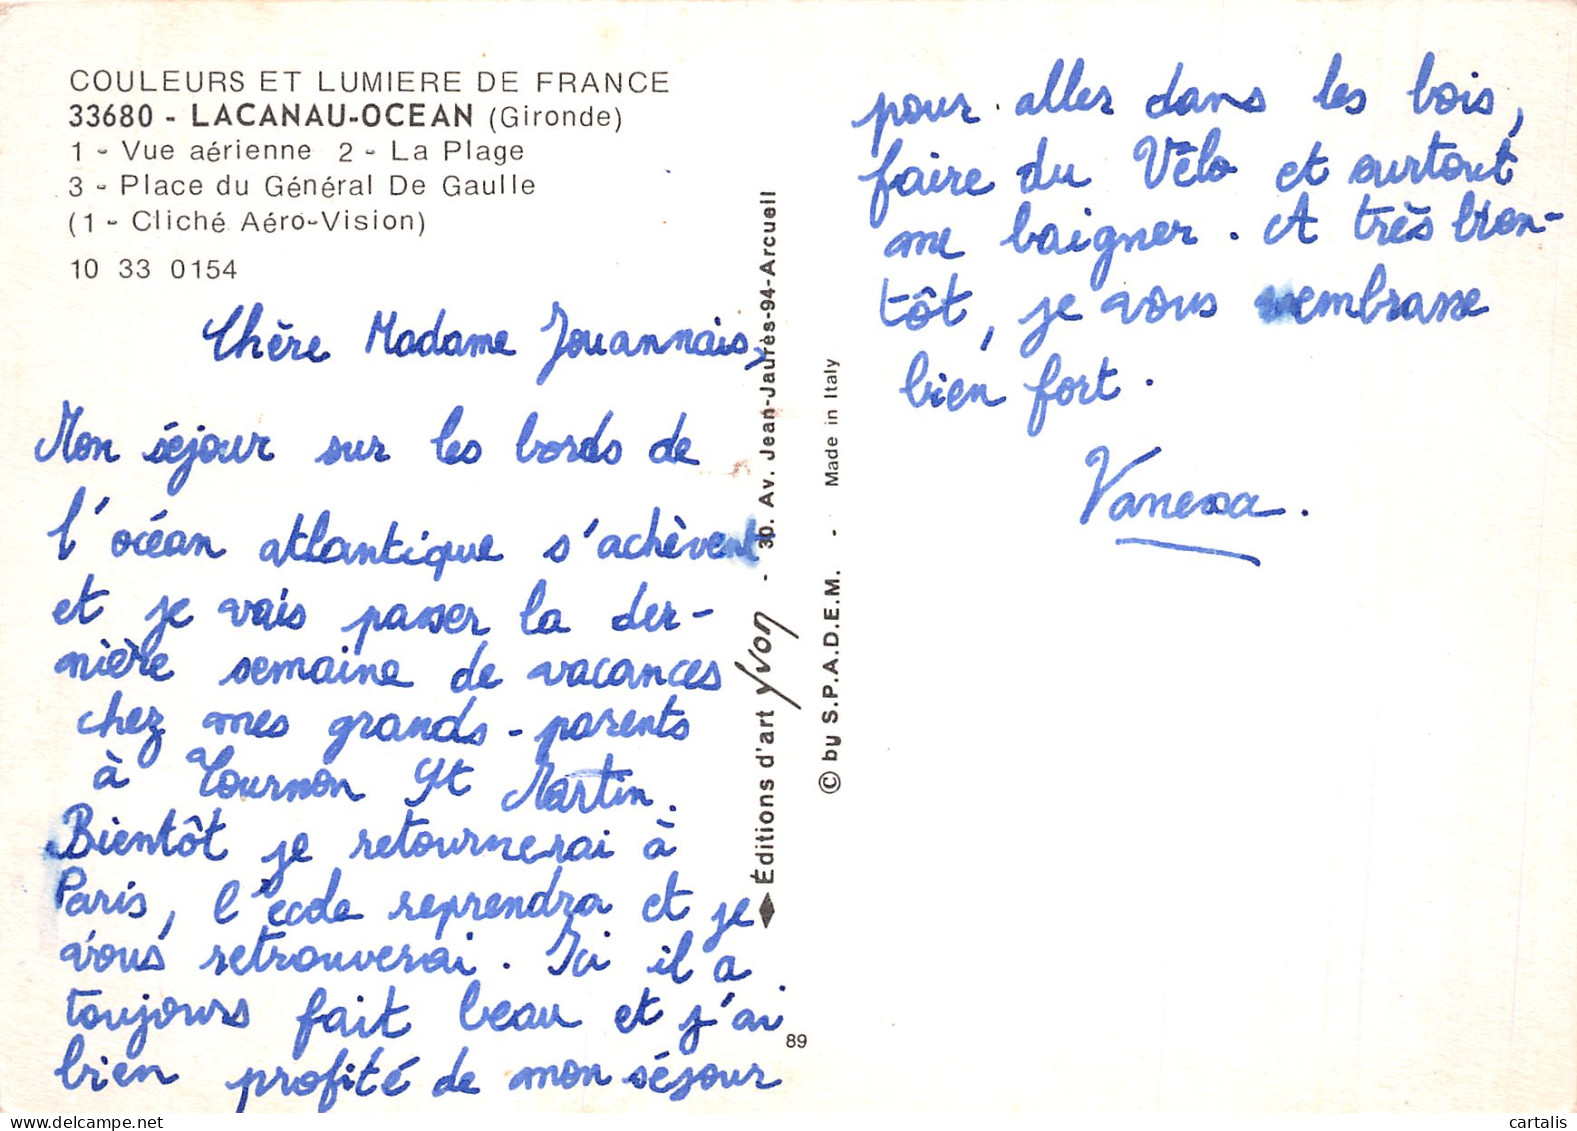 COULEURS ET LUMIERE DE FRANCE
33680 - LACANAU-OCEAN (Gironde)
1 - Vue aérienne 2 - La Plage
3 - Place du Général De Gaulle
(1 - Cliché Aéro-Vision)
10 33 0154
Chère Madame Jouannais,
Mon séjour sur les bords de
l'océan atlantique s'achèvent
et je vais passer la der-
nière semaine de vacances
chez mes grands-parents
à Tournon St Martin.
Bientôt je retournerai à
Paris, l'école reprendra et je
vous retrouverai. Ici il a
toujours fait beau et j'ai
bien profité de mon séjour
pour aller dans les bois,
faire du Vélo et surtout
me baigner. A très bien-
tôt, je vous embrasse
bien fort.
Vanessa.
Éditions d'art Yvon - 30, Av. Jean-Jaurès-94-Arcueil
© by S.P.A.D.E.M. - Made in Italy
89
cartalis